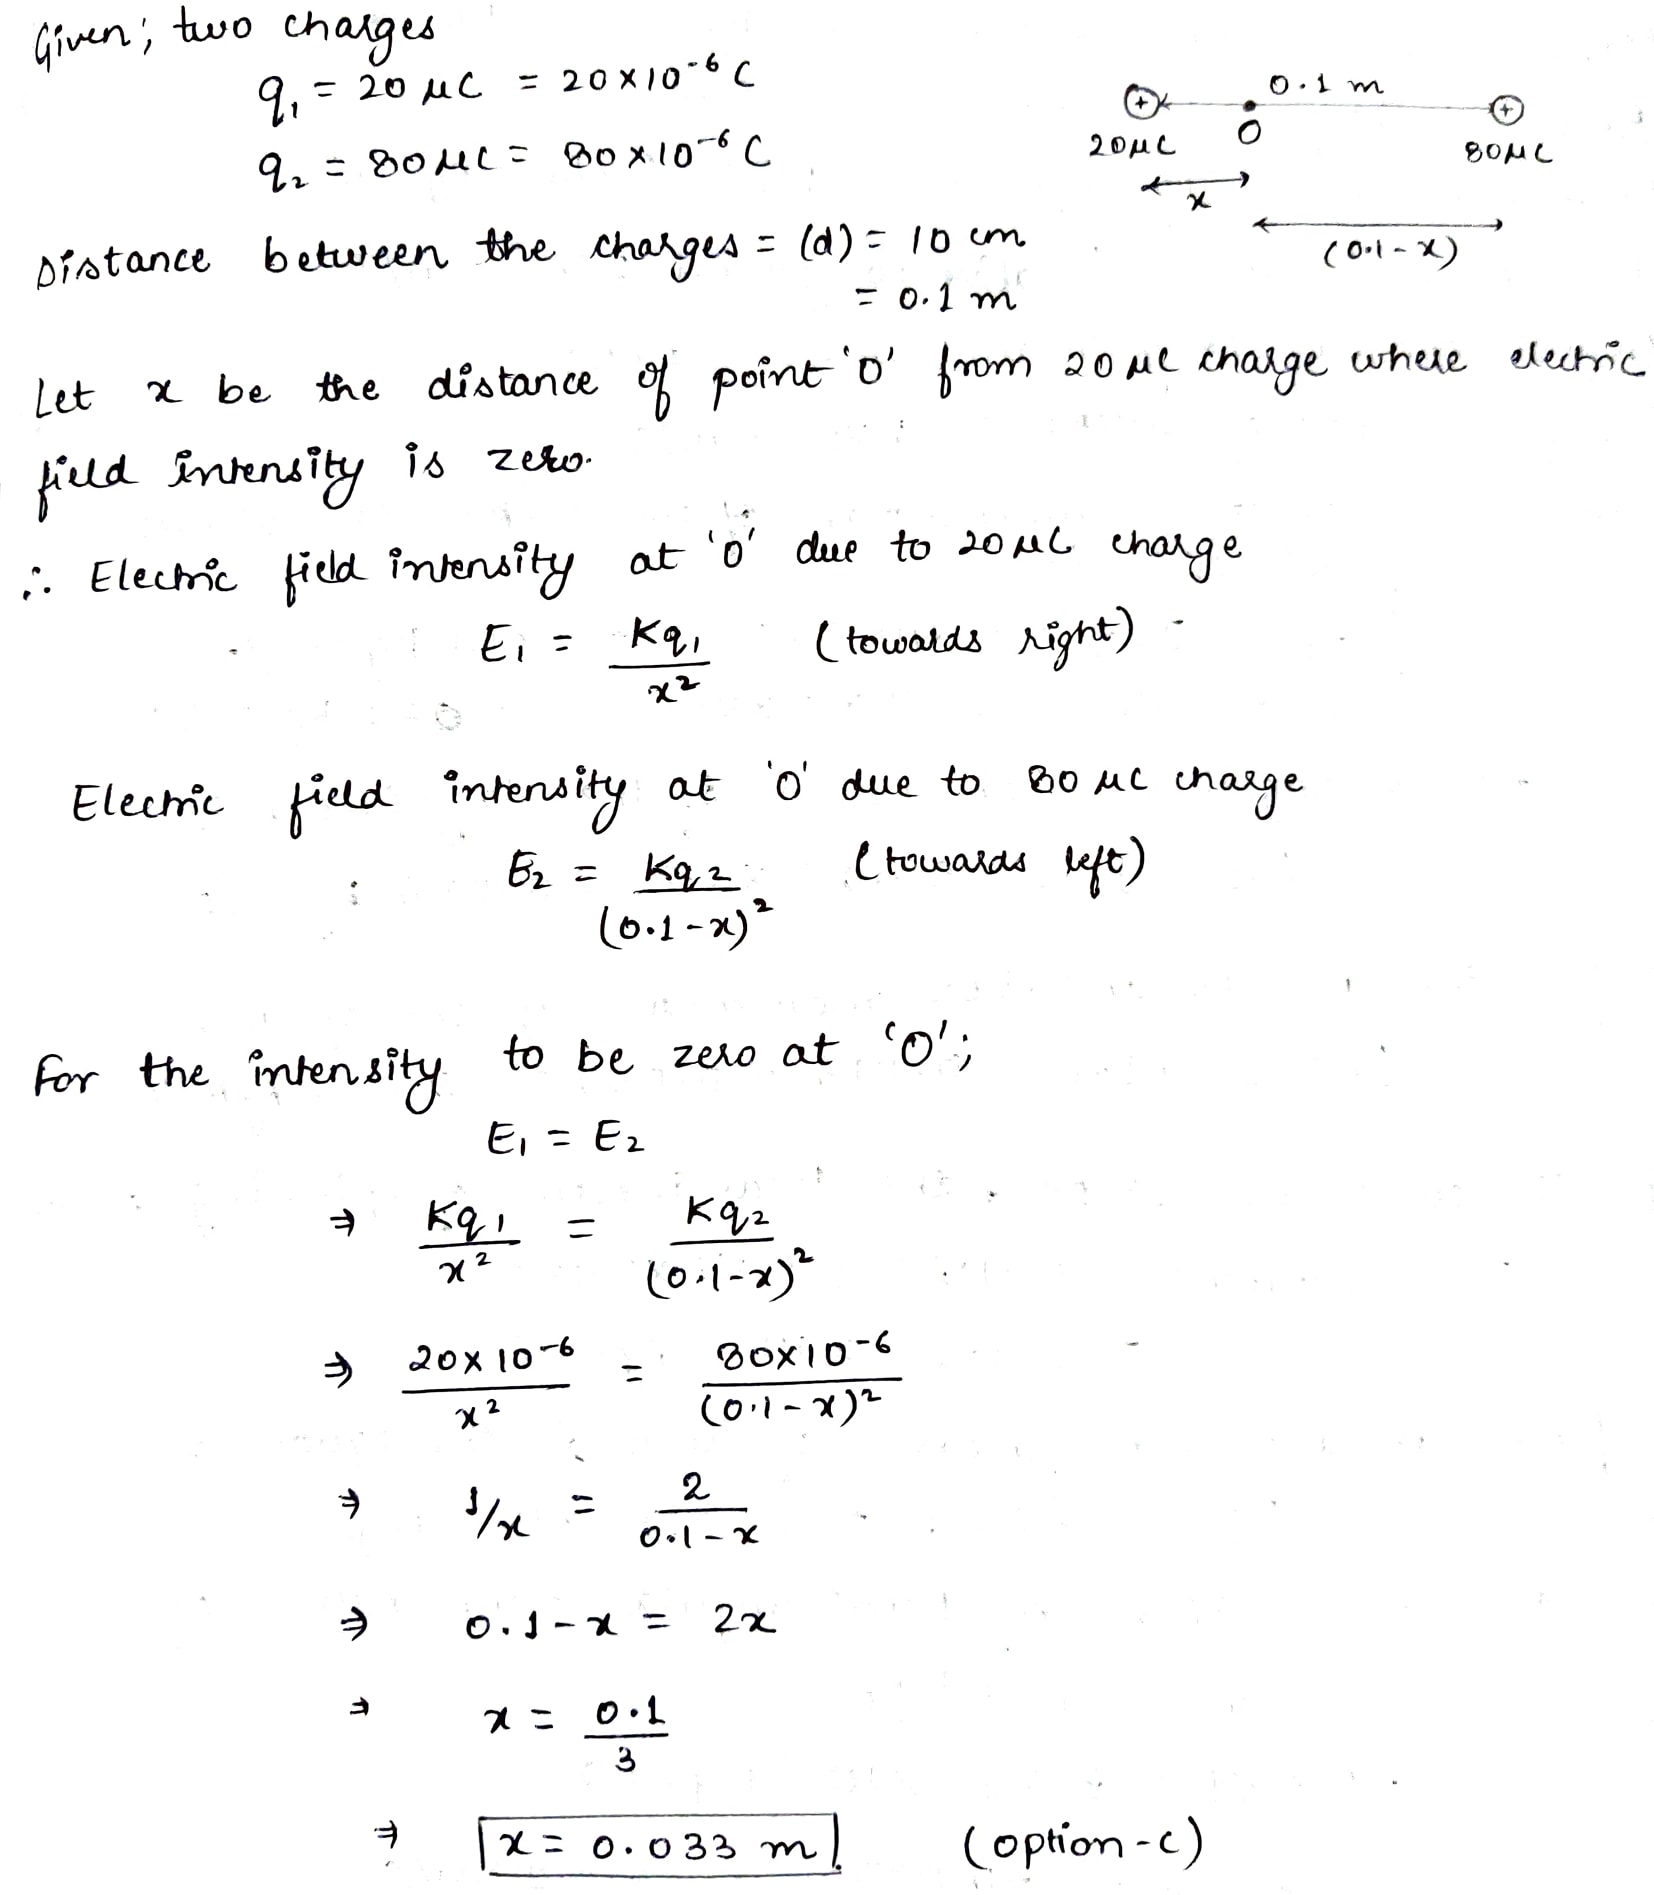 Given; two charges
q₁ = 20 μC = 20×10⁻⁶ C
q₂ = 80 μC = 80×10⁻⁶ C
0.1 m
+ +
20μC O 80μC
x
(0.1-x)
Distance between the charges = (d) = 10 cm
= 0.1 m
Let x be the distance of point 'O' from 20 μC charge where electric
field intensity is zero.
∴ Electric field intensity at 'O' due to 20 μC charge
E₁ = Kq₁/x² (towards right)
Electric field intensity at 'O' due to 80 μC charge
E₂ = Kq₂/(0.1-x)² (towards left)
For the intensity to be zero at 'O';
E₁ = E₂
⇒ Kq₁/x² = Kq₂/(0.1-x)²
⇒ 20×10⁻⁶/x² = 80×10⁻⁶/(0.1-x)²
⇒ 1/x = 2/0.1-x
⇒ 0.1-x = 2x
⇒ x = 0.1/3
⇒ x = 0.033 m. (option-c)